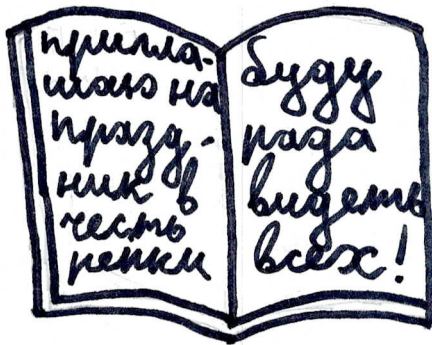 пригла-
шаю на
празд-
ник в
честь
репки
буду
рада
видеть
всех!